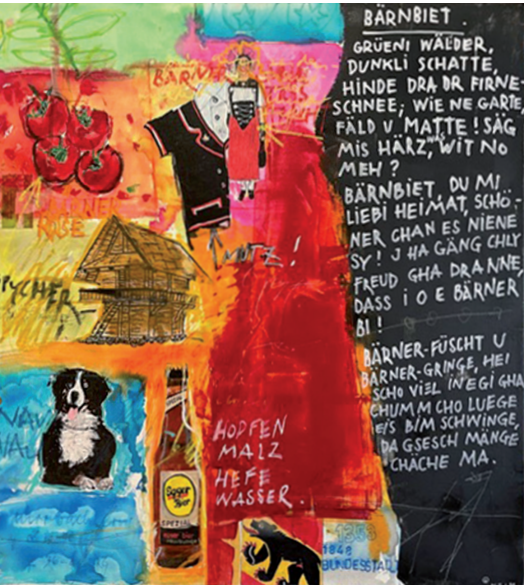 BÄRNBIET.
GRÜENI WÄLDER,
DUNKLI SCHATTE,
HINDE DRA DR FIRNE-
SCHNEE; WIE NE GARTE
FÄLD U MATTE! SÄG
MIS HÄRZ, WIT NO
MEH?
BÄRNBIET, DU MI
LIEBI HEIMAT, SCHÖ-
NER CHAN ES NIENE
SY! J HA GÄNG CHLY
FREUD GHA DRANNE,
DASS I O E BÄRNER
BI!
BÄRNER-FÜSCHT U
BÄRNER-GRINGE, HEI
SCHO VIEL INEGI GHA
CHUMM CHO LUEGE
EIS BIM SCHWINGE,
DA GSESCH MÄNGE
CHÄCHE MA.
BÄRNER
BÄRNER
ROSE
MUTZ!
PYCHER
WAU
WAU
HOPFEN
MALZ
HEFE
WASSER.
Egger
Bier
SPEZIAL
1353
1848
BUNDESSTADT